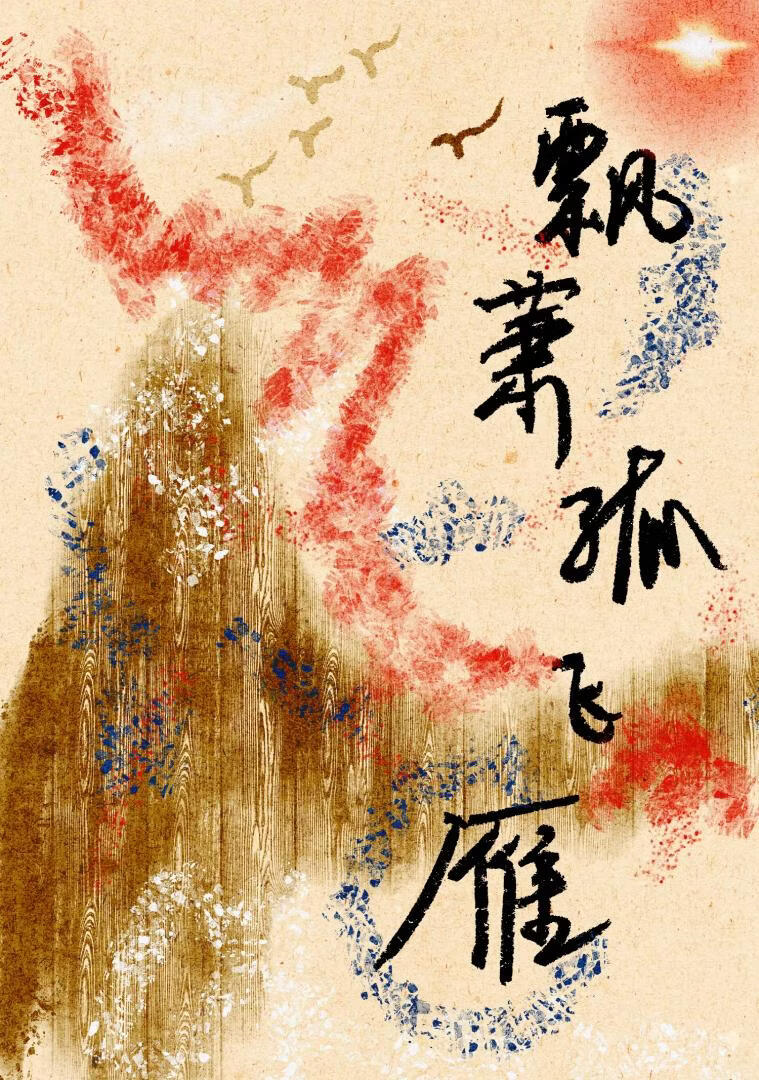 飘萧孤飞雁